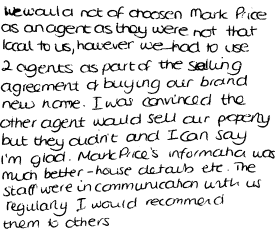 We would not of choosen Mark Price
as an agent as they were not that
local to us, however we had to use
2 agents as part of the selling
agreement & buying our brand
new home. I was convinced the
other agent would sell our property
but they didn't and I can say
I'm glad. Mark Price's information was
much better - house details etc. The
staff were in communication with us
regularly I would recommend
them to others